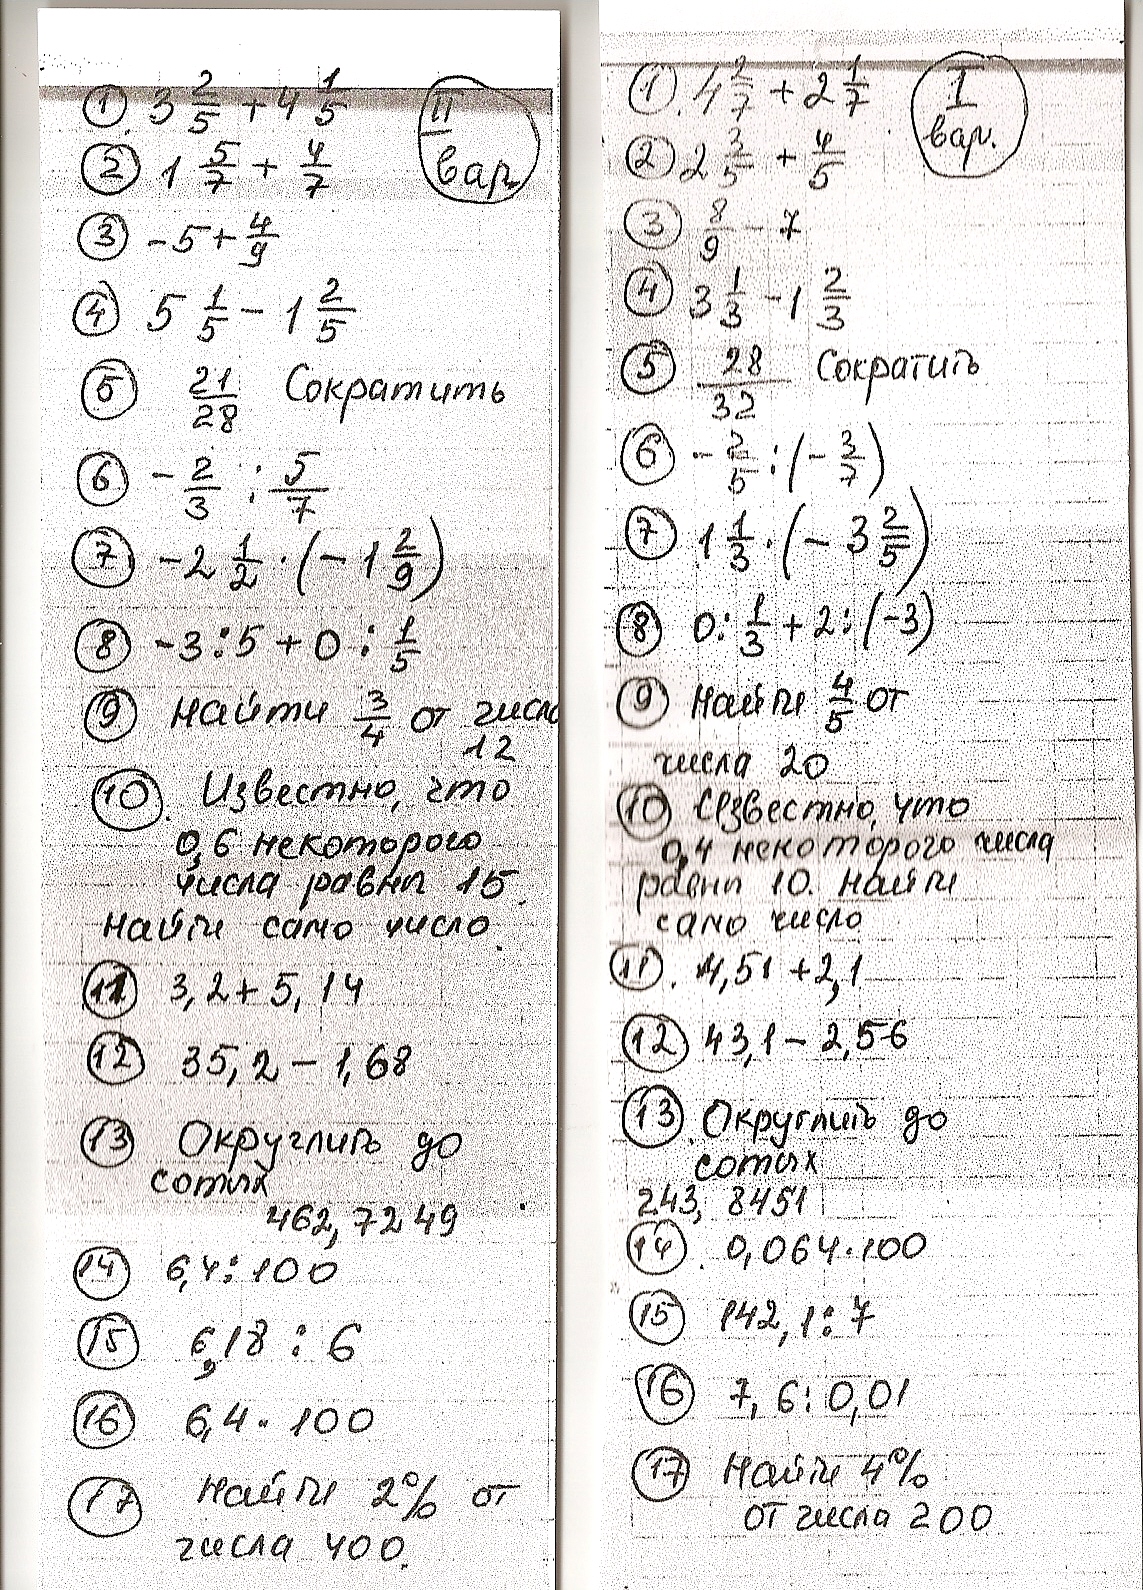 II вар.
① 3 2/5 + 4 1/5
② 1 5/7 + 4/7
③ -5 + 4/9
④ 5 1/5 - 1 2/5
⑤ 21/28 Сократить
⑥ - 2/3 : 5/7
⑦ -2 1/2 · (-1 2/9)
⑧ -3:5 + 0 : 1/5
⑨ Найти 3/4 от числа
12
⑩. Известно, что
0,6 некоторого
числа равны 15.
Найти само число.
⑪ 3,2 + 5,14
⑫ 35,2 - 1,68
⑬ Округлить до
сотых
462,7249
⑭ 6,4 : 100
⑮ 6,18 : 6
⑯ 6,4 · 100
⑰ Найти 2% от
числа 400.
I вар.
① 4 2/7 + 2 1/7
② 2 3/5 + 4/5
③ 8/9 - 7
④ 3 1/3 - 1 2/3
⑤ 28/32 Сократить
⑥ - 2/5 : (- 3/7)
⑦ 1 1/3 · (- 3 2/5)
⑧ 0 : 1/3 + 2 : (-3)
⑨ Найти 4/5 от
числа 20
⑩ Известно, что
0,4 некоторого числа
равны 10. Найти
само число
⑪. 4,51 + 2,1
⑫ 43,1 - 2,56
⑬. Округлить до
сотых
243,8451
⑭. 0,064 · 100
⑮ 142,1 : 7
⑯ 7,6 : 0,01
⑰ Найти 4%
от числа 200